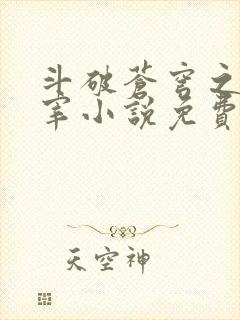 斗破蒼穹之
宰小說免費
天空神